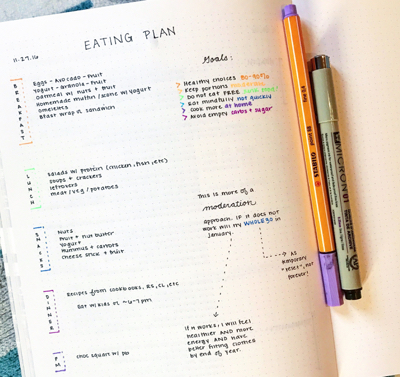 EATING PLAN
11.27.16
BREAKFAST
Eggs - Avocado - Fruit
Yogurt - Granola - Fruit
Oatmeal w/ nuts + fruit
Homemade muffin/scone w/ yogurt
Omelets
Bfast wrap or sandwich
Goals:
> Healthy choices 80-90%
> Keep portions
> Do not eat FREE
> Eat mindfully not quickly
> Cook more at home
> Avoid empty carbs + sugar
LUNCH
Salads w/ protein (chicken, fish, etc)
Soups + crackers
Leftovers
Meat / veg / potatoes
This is more of a
moderation
approach. If it does not
work will try WHOLE30 in
January.
SNACKS
Nuts
Fruit + nut butter
Yogurt
Hummus + carrots
Cheese stick + fruit
As
temporary
"reset", not
forever!
DINNER
Recipes from cookbooks, etc
Eat w/ kids or ~6-7pm
If it works, I will feel
healthier AND more
energy AND have
better fitting clothes
by end of year.
PM
choc square w/ PB
STABILO
MICRON 01